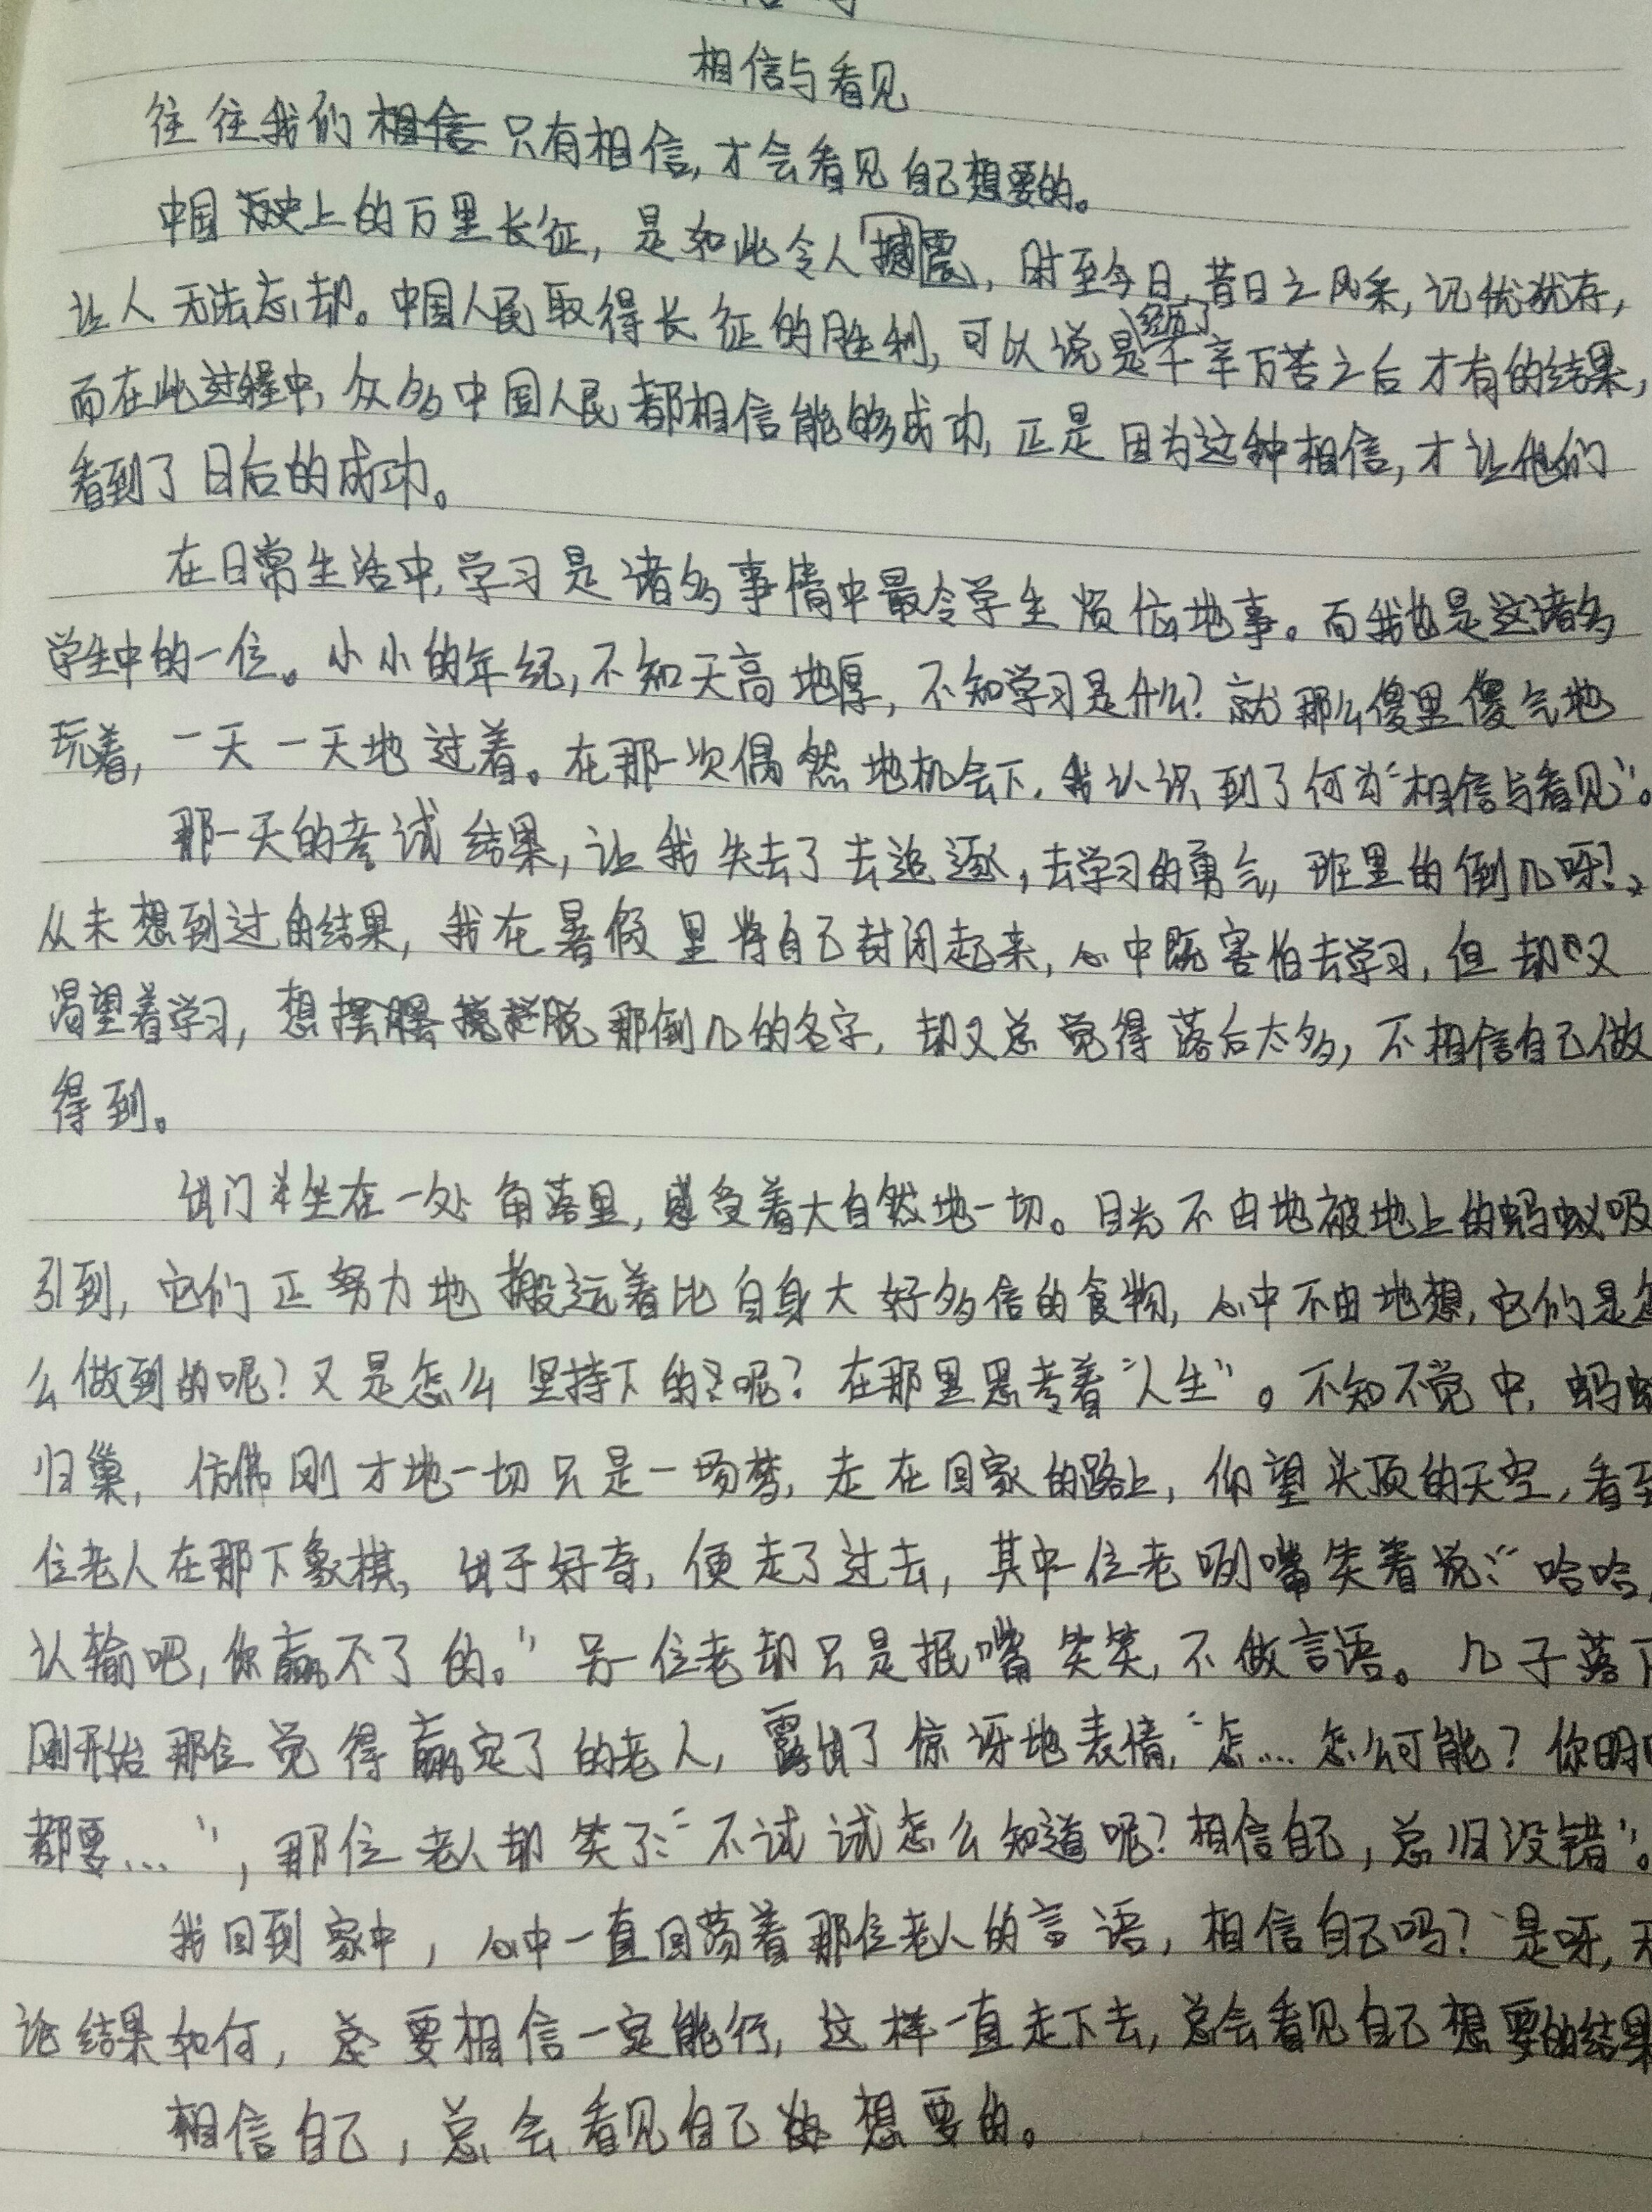 相信与看见
往往我们相信只有相信,才会看见自己想要的。
中国历史上的万里长征,是如此令人撼震,时至今日,昔日之风采,记忧犹存,
让人无法忘却。中国人民取得长征的胜利,可以说是经历了千辛万苦之后才有的结果,
而在此过程中,众多中国人民都相信能够成功,正是因为这种相信,才让他们
看到了日后的成功。
在日常生活中,学习是诸多事情中最令学生烦恼地事。而我也是这诸多
学生中的一位。小小的年纪,不知天高地厚,不知学习是什么?就那么傻里傻气地
玩着,一天一天地过着。在那一次偶然地机会下,我认识到了何为“相信与看见”。
那一天的考试结果,让我失去了去追逐,去学习的勇气,班里的倒几呀!,
从未想到过的结果,我在暑假里将自己封闭起来,心中既害怕去学习,但却又
渴望着学习,想摆脱那倒几的名字,却又总觉得落后太多,不相信自己做
得到。
出门坐在一处角落里,感受着大自然地一切。目光不由地被地上的蚂蚁吸
引到,它们正努力地搬运着比自身大好多倍的食物,心中不由地想,它们是怎
么做到的呢?又是怎么坚持下的呢?在那里思考着“人生”。不知不觉中,蚂蚁
归巢,仿佛刚才地一切只是一场梦,走在回家的路上,仰望头顶的天空,看到
位老人在那下象棋,出于好奇,便走了过去,其中一位老咧嘴笑着说:“哈哈,
认输吧,你赢不了的。”另一位老却只是抿嘴笑笑,不做言语。几子落下
刚开始那位觉得赢定了的老人,露出了惊讶地表情,“怎....怎么可能?你明明
都要...”,那位老人却笑了:“不试试怎么知道呢?相信自己,总归没错”。
我回到家中,心中一直回荡着那位老人的言语,相信自己吗?是呀,无
论结果如何,总要相信一定能行,这样一直走下去,总会看见自己想要的结果
相信自己,总会看见自己想要的。